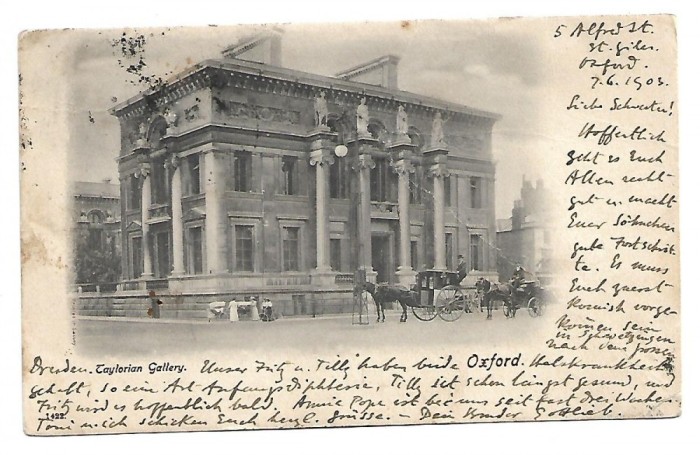 5 Alfred St.
St. Giles.
Oxford.
7.6.1903.
Liebe Schwester!
Hoffentlich
geht es Euch
Allen recht
gut u. macht
Euer Söhnchen
gute Fortschrit-
te. Es muss
Euch zuerst
komisch vorge-
kommen sein
in Schwetzingen
nach dem grossen
Dresden. Unser Fritz u. Tilly haben beide Halskrankheit
Taylorian Gallery.
Oxford.
gehabt, so eine Art Anfangsdiphterie, Tilly ist schon längst gesund, und
Fritz wird es hoffentlich bald. Annie Pope ist bei uns seit fast drei Wochen.
1422.
Toni u. ich schicken Euch herzl. Grüsse. – Dein Bruder Gottlieb.